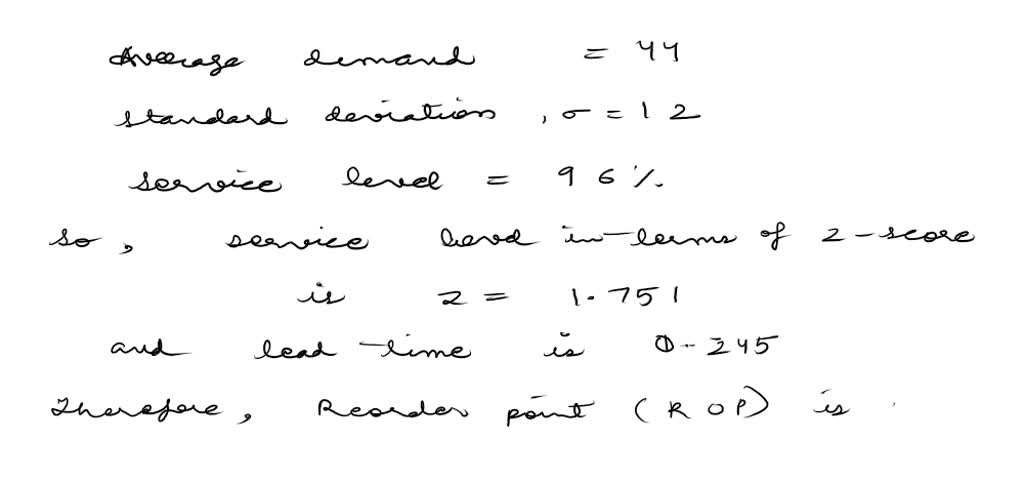 Average demand = 44
standard deviation, σ = 12
service level = 96%.
so, service level in-terms of z-score
is z = 1.751
and lead-time is 0.245
Therefore, Reorder point (ROP) is